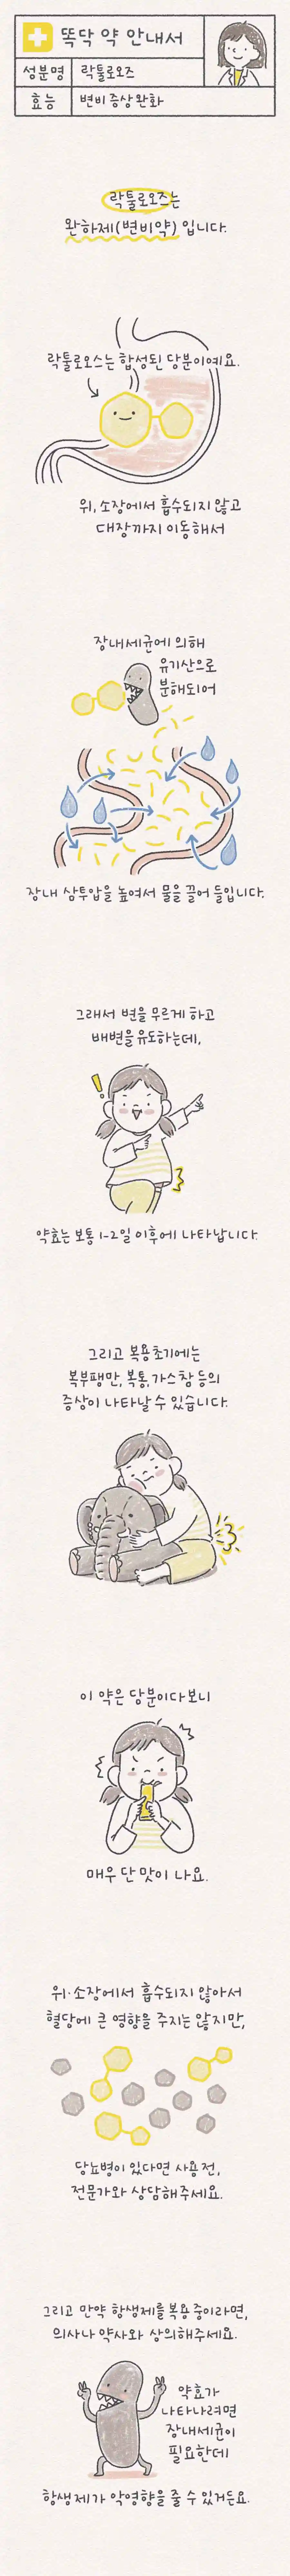 똑닥 약 안내서
성분명 락툴로오즈
효능 변비 증상 완화
락툴로오즈는
완하제(변비약) 입니다.
락툴로오스는 합성된 당분이예요.
위, 소장에서 흡수되지 않고
대장까지 이동해서
장내세균에 의해
유기산으로
분해되어
장내 삼투압을 높여서 물을 끌어 들입니다.
그래서 변을 무르게 하고
배변을 유도하는데,
약효는 보통 1-2일 이후에 나타납니다.
그리고 복용 초기에는
복부팽만, 복통, 가스참 등의
증상이 나타날 수 있습니다.
이 약은 당분이다보니
매우 단 맛이 나요.
위·소장에서 흡수되지 않아서
혈당에 큰 영향을 주지는 않지만,
당뇨병이 있다면 사용 전,
전문가와 상담해주세요.
그리고 만약 항생제를 복용 중이라면,
의사나 약사와 상의해주세요.
약효가
나타나려면
장내세균이
필요한데
항생제가 악영향을 줄 수 있거든요.